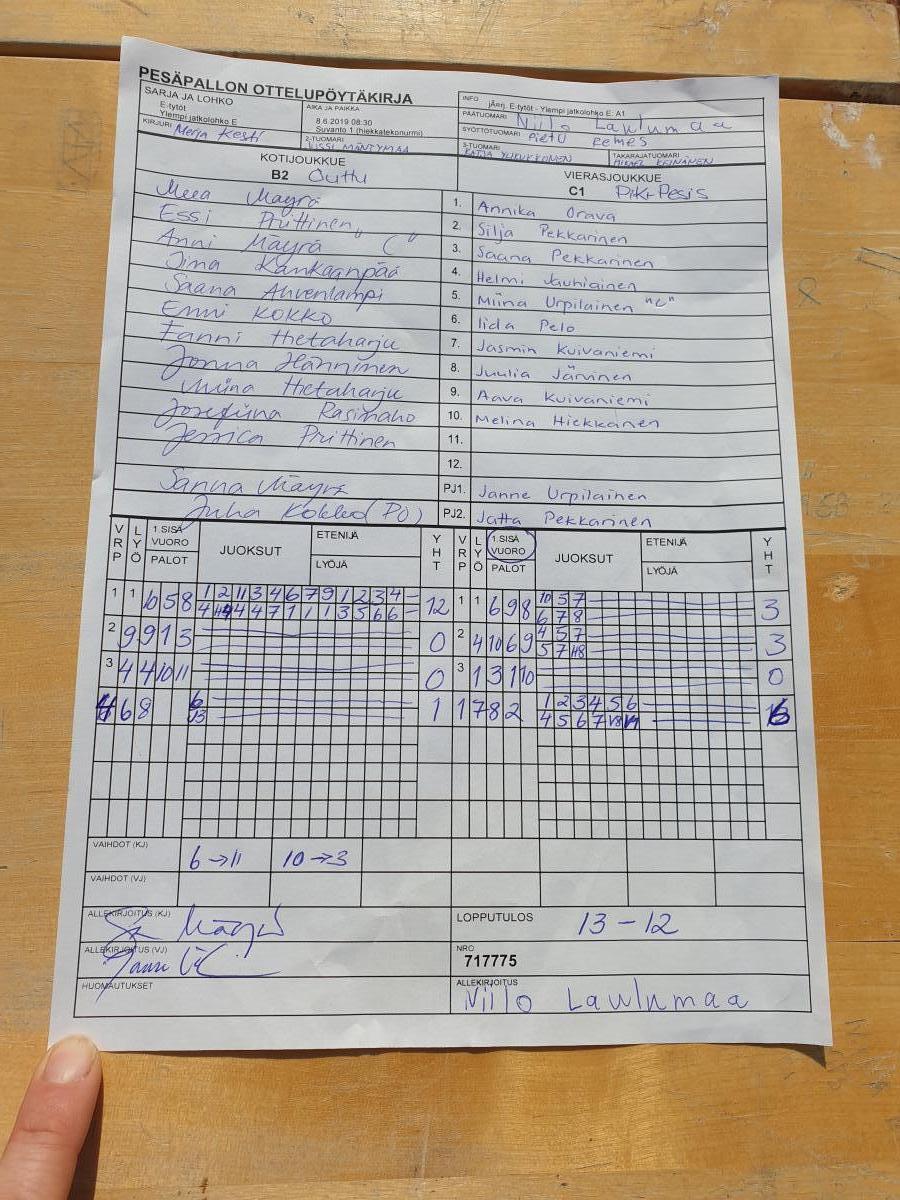 PESÄPALLON OTTELUPÖYTÄKIRJA
SARJA JA LOHKO
E-tytöt
Ylempi jatkolohko E
AIKA JA PAIKKA
8.6.2019 08:30
Suvanto 1 (hiekkatekonurmi)
INFO
jÄerj. E-tytöt - Ylempi jatkolohko E: A1
PÄÄTUOMARI Niilo Laulumaa
SYÖTTÖTUOMARI Pietu Remes
KIRJURI Merja Kesti
2-TUOMARI JUSSI MÄNTYMAA
3-TUOMARI
TAKARAJATUOMARI MIKAEL KEINÄNEN
KOTIJOUKKUE
B2 Outtu
VIERASJOUKKUE
C1 PiKi-Pesis
Meea Mäyrä 1. Annika Orava
Essi Priittinen 2. Silja Pekkarinen
Anni Mäyrä "C" 3. Saana Pekkarinen
Jina Kankaanpää 4. Helmi Jauhiainen
Saana Ahvenlampi 5. Miina Urpilainen "C"
Enni KOKKO 6. Iida Pelo
Fanni Hietaharju 7. Jasmin Kuivaniemi
Jonna Hänninen 8. Juulia Järvinen
Miina Hietaharju 9. Aava Kuivaniemi
Josefiina Rasinaho 10. Melina Hiekkainen
Jessica Priittinen 11.
12.
Sanna Mäyrä PJ1. Janne Urpilainen
Juha Kokko (PO) PJ2. Jatta Pekkarinen
VRP LYÖ 1.SISÄ VUORO PALOT JUOKSUT ETENIJÄ LYÖJÄ YHT VRP LYÖ 1.SISÄ VUORO PALOT JUOKSUT ETENIJÄ LYÖJÄ YHT
1 1 6 5 8 1 2 11 3 4 6 7 9 1 2 3 4 - 12 1 1 6 9 8 10 5 7 3
4 4 4 4 7 1 1 1 3 5 6 6 - 6 7 8
2 9 9 1 3 0 2 4 10 6 9 4 5 7 3
5 7 8
3 4 4 10 11 0 3 1 3 1 10 0
4 6 8 6 1 1 7 8 2 1 2 3 4 5 6 6
3 4 5 6 7
VAIHDOT (KJ) 6→11 10→3
VAIHDOT (VJ)
ALLEKIRJOITUS (KJ) Mäyrä
LOPPUTULOS 13-12
ALLEKIRJOITUS (VJ)
NRO
717775
HUOMAUTUKSET
ALLEKIRJOITUS
Niilo Laulumaa